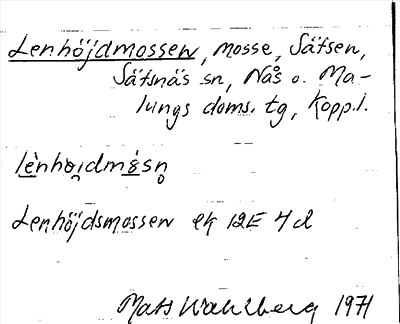 Lenhöjdmossen, mosse, Säfsen,
Säfsnäs sn, Nås o. Ma-
lungs doms. tg, Kopp.l.
lènhøidmåsn̥
Lenhöjdsmossen ek 12E 4d
Mats Wahlberg 1971